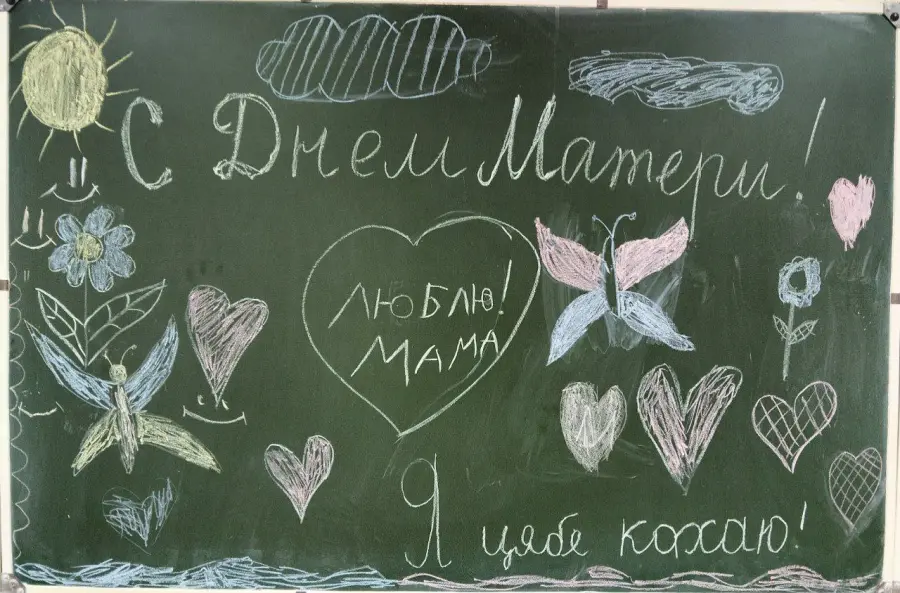 С Днем Матери!
ЛЮБЛЮ!
МАМА
Я цябе кахаю!